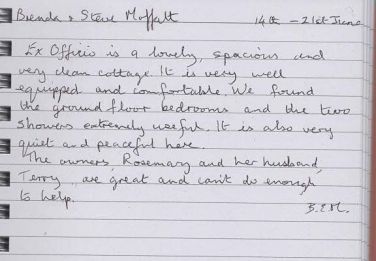 Brenda & Steve Moffatt 14th – 21st June
Ex Officio is a lovely, spacious and
very clean cottage. It is very well
equipped and comfortable. We found
the ground floor bedrooms and the two
showers extremely useful. It is also very
quiet and peaceful here.
The owners, Rosemary and her husband,
Terry, are great and can't do enough
to help.
B.E.M.